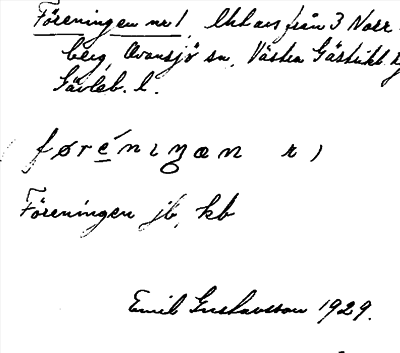 Föreningen nr 1, Utt avs från 3 Norr
berg, Ovansjö sn, Västra Gästrikl.
Gävleb. l.
Föreningen jb, kb
Emil Gustavsson 1929.